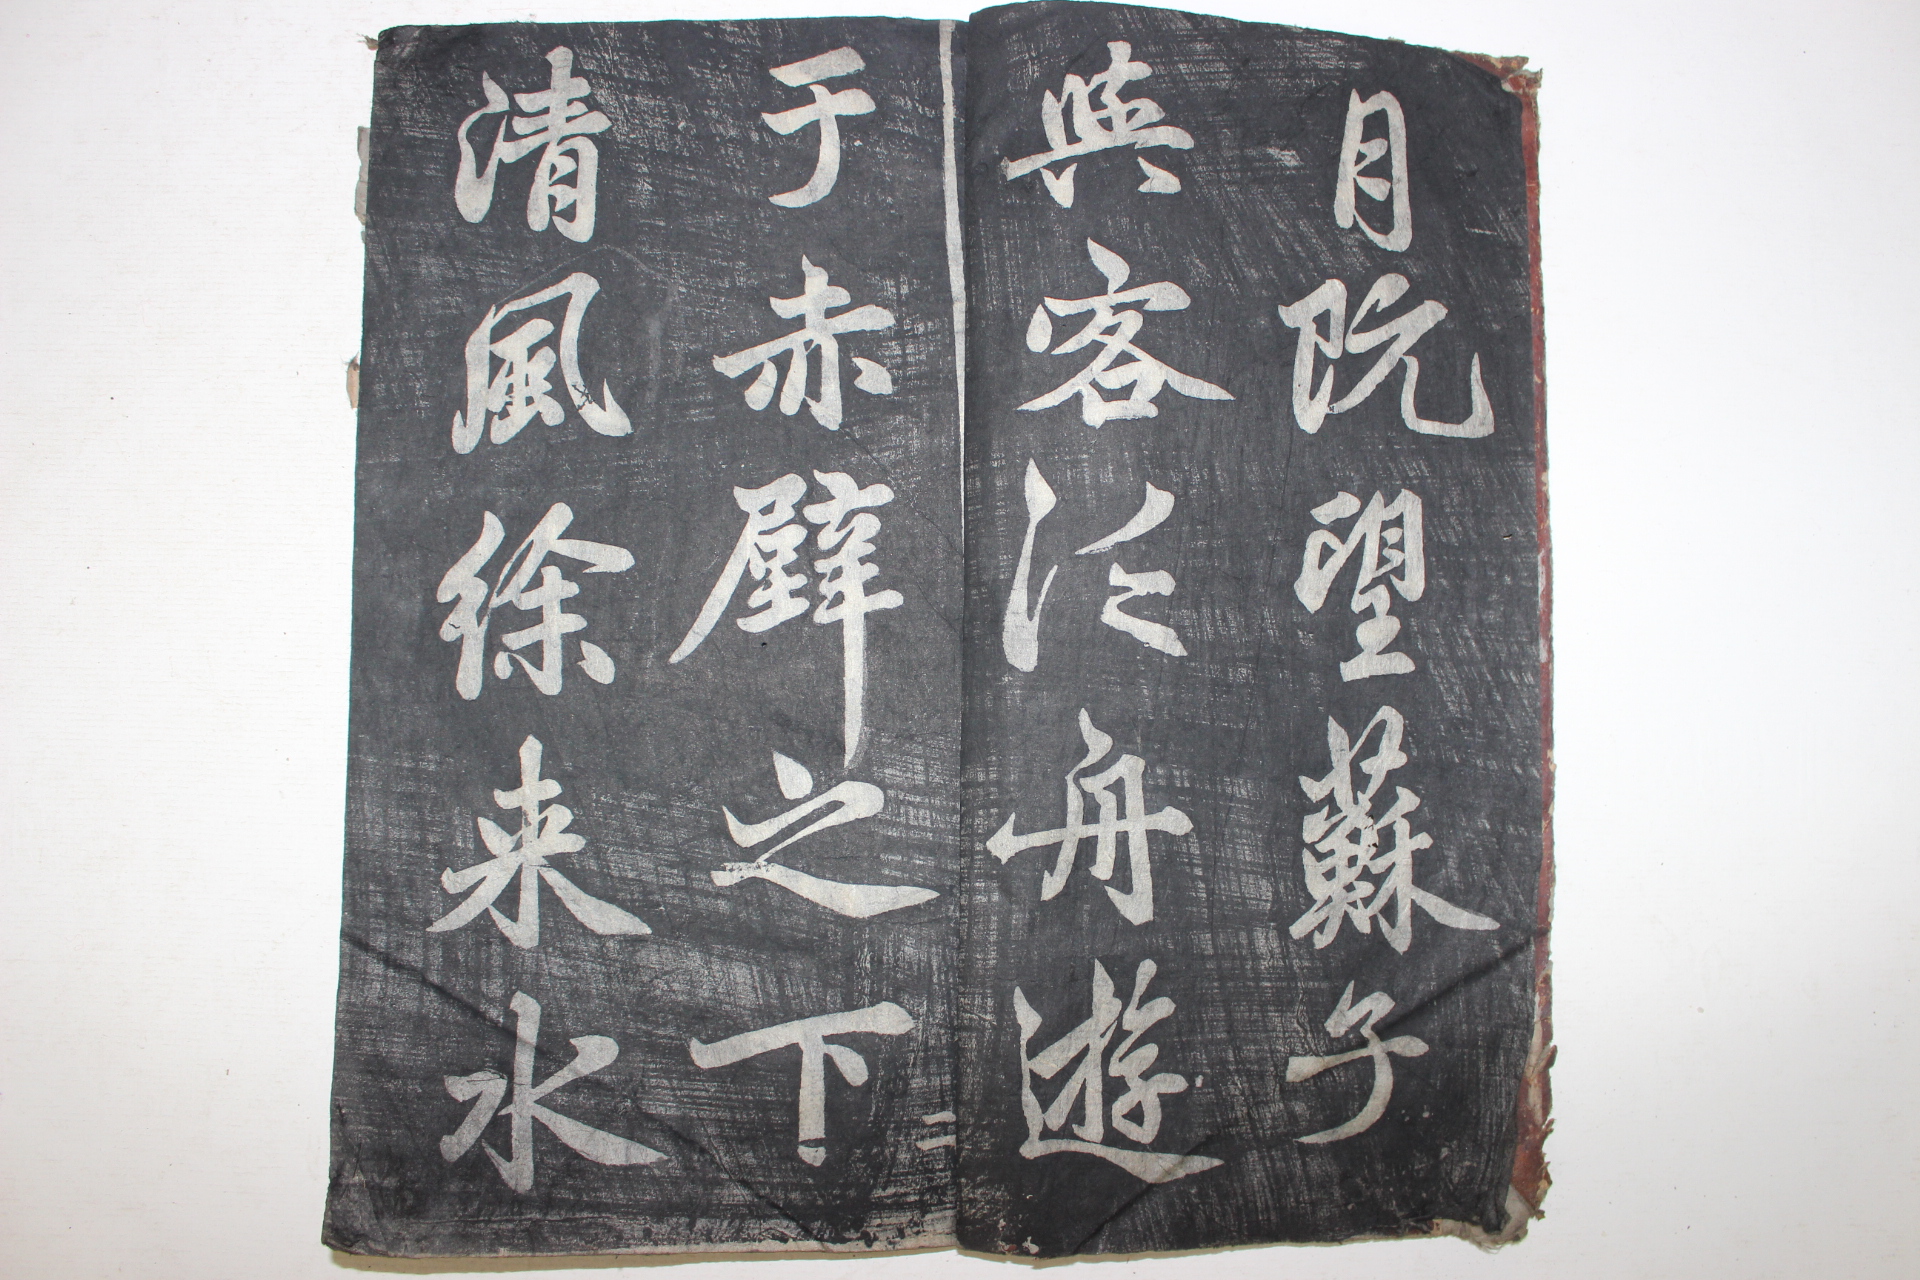 月既望蘇子
與客泛舟遊
于赤壁之下
二
清風徐来水